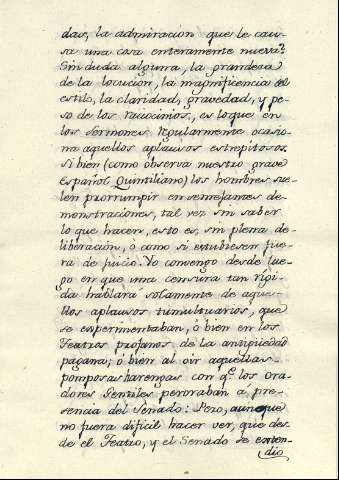 das, la admiracion que le cau-
sa una cosa enteramente nueva?
Sin duda alguna, la grandeza
de la locución, la magnificencia del
estilo, la claridad, gravedad, y pe-
so de los raciocinios, es lo que en
los Sermones regularmente ocasio-
na aquellos aplausos estrepitosos.
Si bien (como observa nuestro grave
Español Quintiliano) los hombres sue-
len prorrumpir en semejantes de-
monstraciones, tal vez sin saber
lo que hacer, esto es, sin plena de-
liberación, ó como si estubiesen fue-
ra de juicio. Yo convengo desde lue-
go en que una censura tan rígi-
da hablara solamente de aque-
llos aplausos tumultuarios, que
se experimentaban, ó bien en los
Teatros profanos de la antigüedad
pagana; ó bien al oir aquellas
pomposas harengas con q.e los Ora-
dores Gentiles peroraban á pre-
sencia del Senado: Pero, aunque
no fuera dificil hacer ver, que des-
de el Teatro, y el Senado se exten-
dio